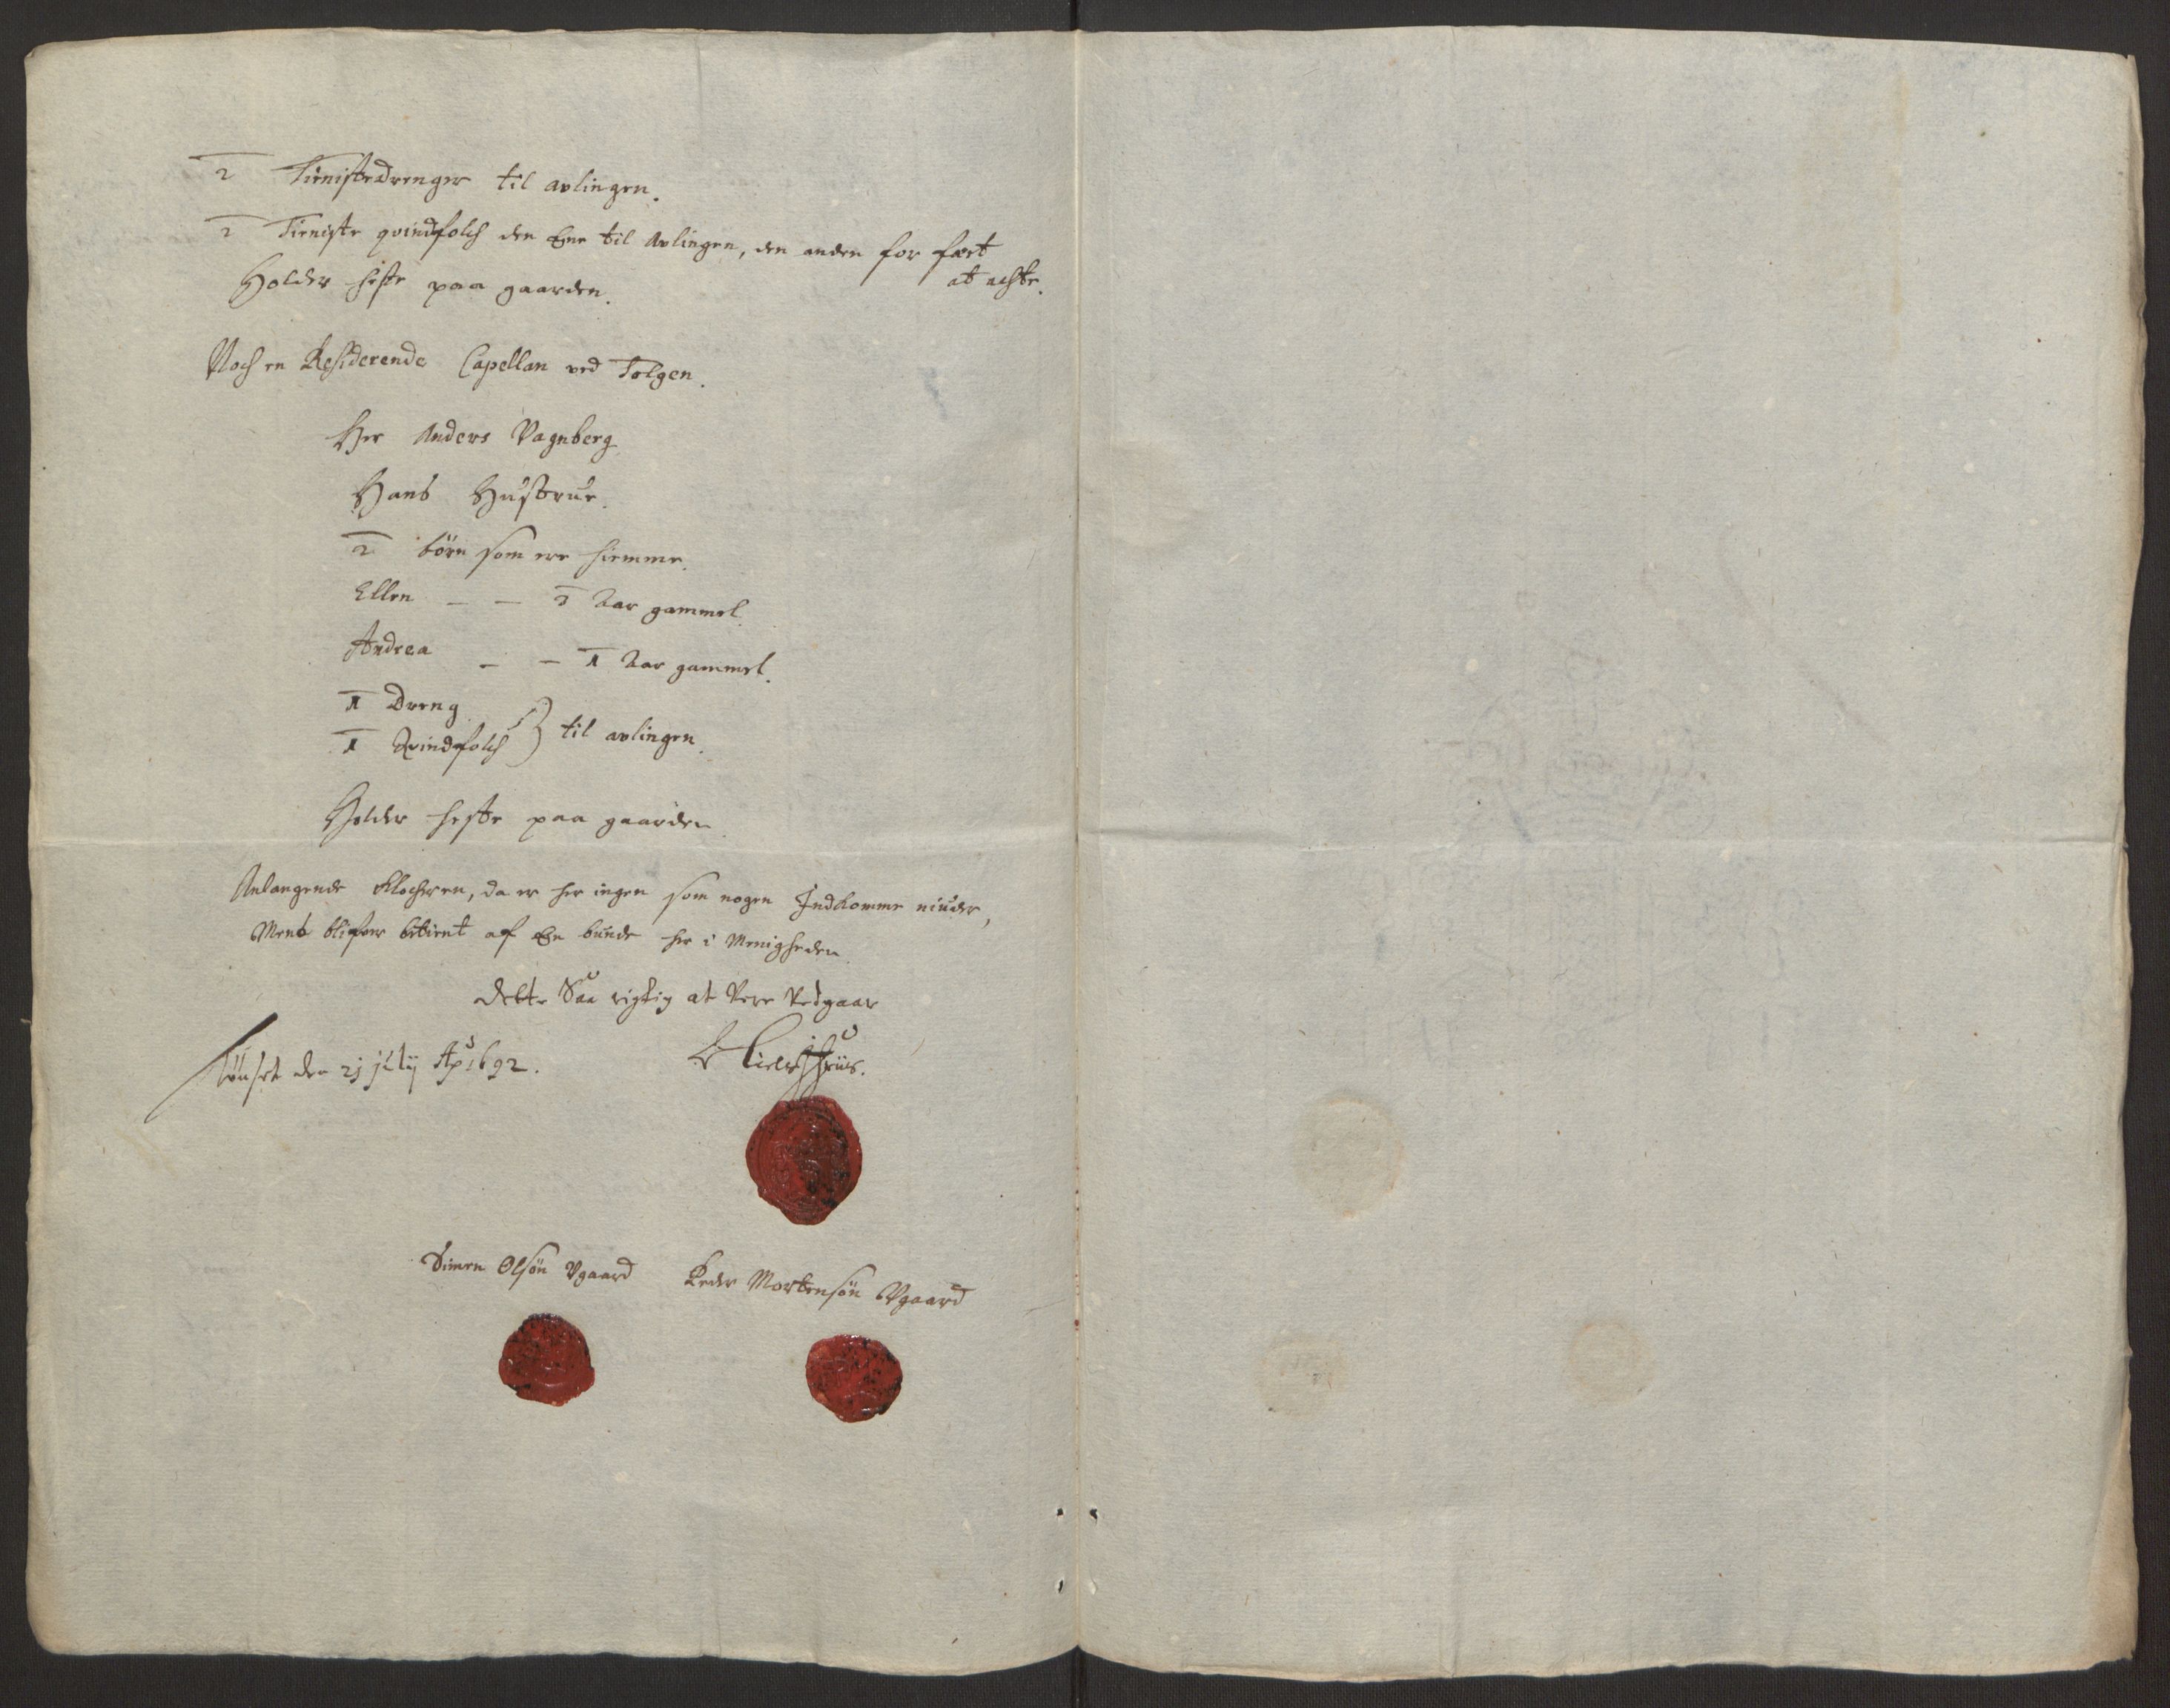 2 Tienistedrenger til avlingen.
2 Tieniste qvindfolch den Ene til Avlingen, den anden for fæet
at achte.
Holder heste paa gaarden.
Noch en Residerende Capellan ved Tolgen.
Her Anders Vagnberg
Hans Hustrue.
2 börn som ere hiemme.
Ellen - - 3 Aar gammel.
Andrea - - 1 Aar gammel.
1 Dreng
1 Qvindfolch } til avlingen.
Holder heste paa gaarden
Anlangende Klocheren, da er her ingen som nogen Indkomme niuder,
Mens blifver betient af En bunde her i Menigheden
Dette Saa rigtig at Vere Vedgaar
den 21 july Ao 1692.
Simen Olsön Vgaard Peder Mortensön Vgaard